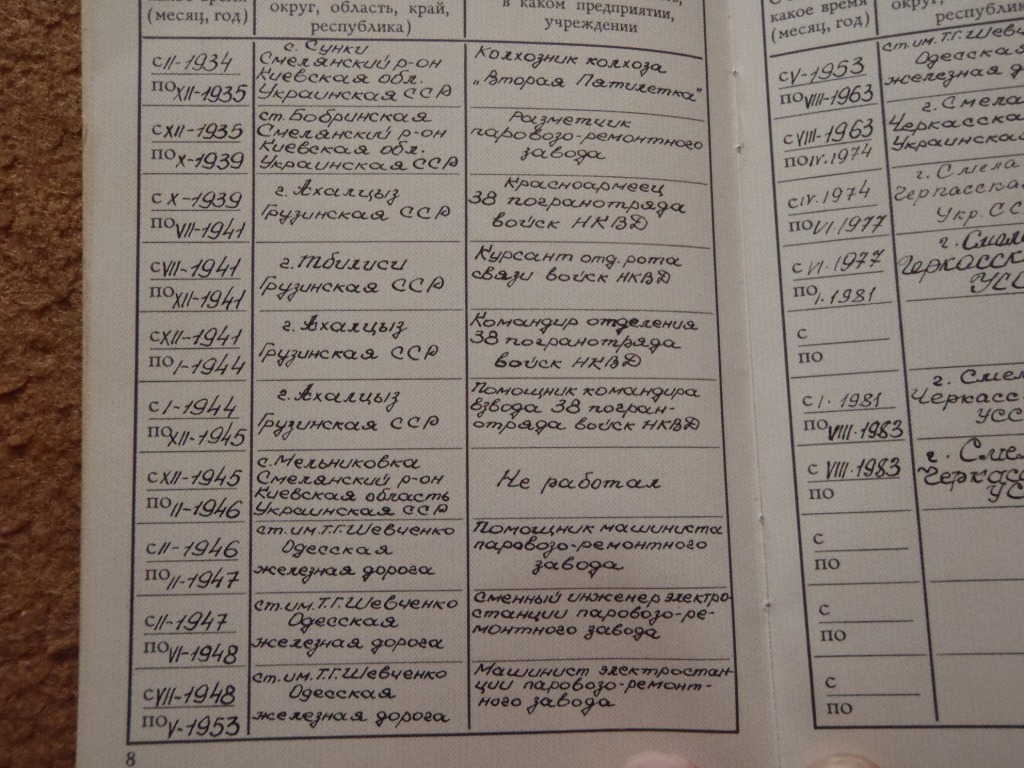 (месяц, год)
округ, область, край,
республика)
в каком предприятии,
учреждении
с II-1934
по XII-1935
с. Сунки
Смелянский р-он
Киевская обл.
Украинская ССР
Колхозник колхоза
„Вторая Пятилетка"
с XII-1935
по X-1939
ст. Бобринская
Смелянский р-он
Киевская обл.
Украинская ССР
Разметчик
паровозо-ремонтного
завода
с X-1939
по VII-1941
г. Ахалцыз
Грузинская ССР
Красноармеец
38 погранотряда
войск НКВД
с VII-1941
по XII-1941
г. Тбилиси
Грузинская ССР
Курсант отд. рота
связи войск НКВД
с XII-1941
по I-1944
г. Ахалцыз
Грузинская ССР
Командир отделения
38 погранотряда
войск НКВД
с I-1944
по XII-1945
г. Ахалцыз
Грузинская ССР
Помощник командира
взвода 38 погран-
отряда войск НКВД
с XII-1945
по II-1946
с. Мельниковка
Смелянский р-он
Киевская область
Украинская ССР
Не работал
с II-1946
по II-1947
ст. им. Т.Г. Шевченко
Одесская
железная дорога
Помощник машиниста
паровозо-ремонтного
завода
с II-1947
по VI-1948
ст. им. Т.Г. Шевченко
Одесская
железная дорога
Сменный инженер электро-
станции паровозо-ре-
монтного завода
с VII-1948
по V-1953
ст. им. Т.Г. Шевченко
Одесская
железная дорога
Машинист электростан-
ции паровозо-ремонт-
ного завода
8
какое время
(месяц, год)
с V-1953
по VIII-1963
ст. им. Т.Г. Шев
Одесская
железная д
с VIII-1963
по IV.1974
г. Смела
Черкасска
Украинск
с IV.1974
по VI.1977
г. Смела
Черпасска
Укр. СС
с VI.1977
по I.1981
г. Смел
Черкасск
УСС
с
по
с I.1981
по VIII.1983
г. Смел
Черкасс
УСС
с VIII.1983
по
г. Смел
Черкасс
УС
с
по
с
по
с
по